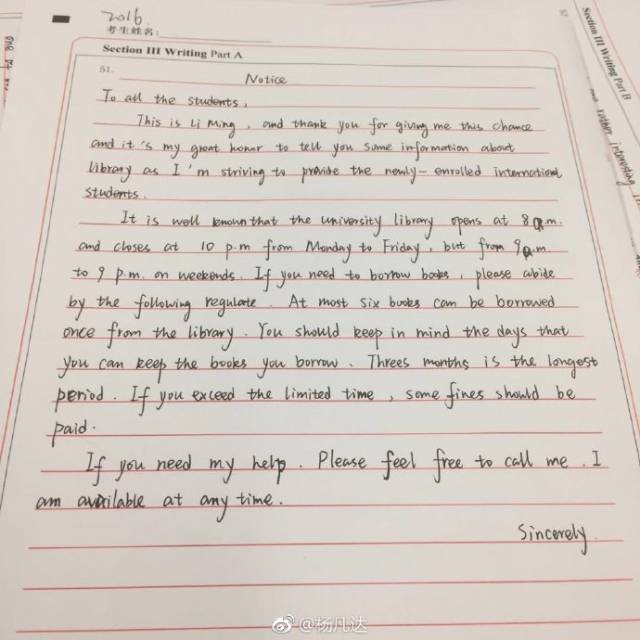 2016.
考生姓名:
Section III Writing Part A
51.
Notice
To all the students,
This is Li Ming, and thank you for giving me this chance
and it's my great honor to tell you some information about
library as I'm striving to provide the newly-enrolled international
students.
It is well known that the university library opens at 8 a.m.
and closes at 10 p.m from Monday to Friday, but from 9 a.m.
to 9 p.m. on weekends. If you need to borrow books, please abide
by the following regulate. At most six books can be borrowed
once from the library. You should keep in mind the days that
you can keep the books you borrow. Threes months is the longest
period. If you exceed the limited time, some fines should be
paid.
If you need my help. Please feel free to call me. I
am available at any time.
Sincerely
Section III Writing Part B
interesting
@杨凡达